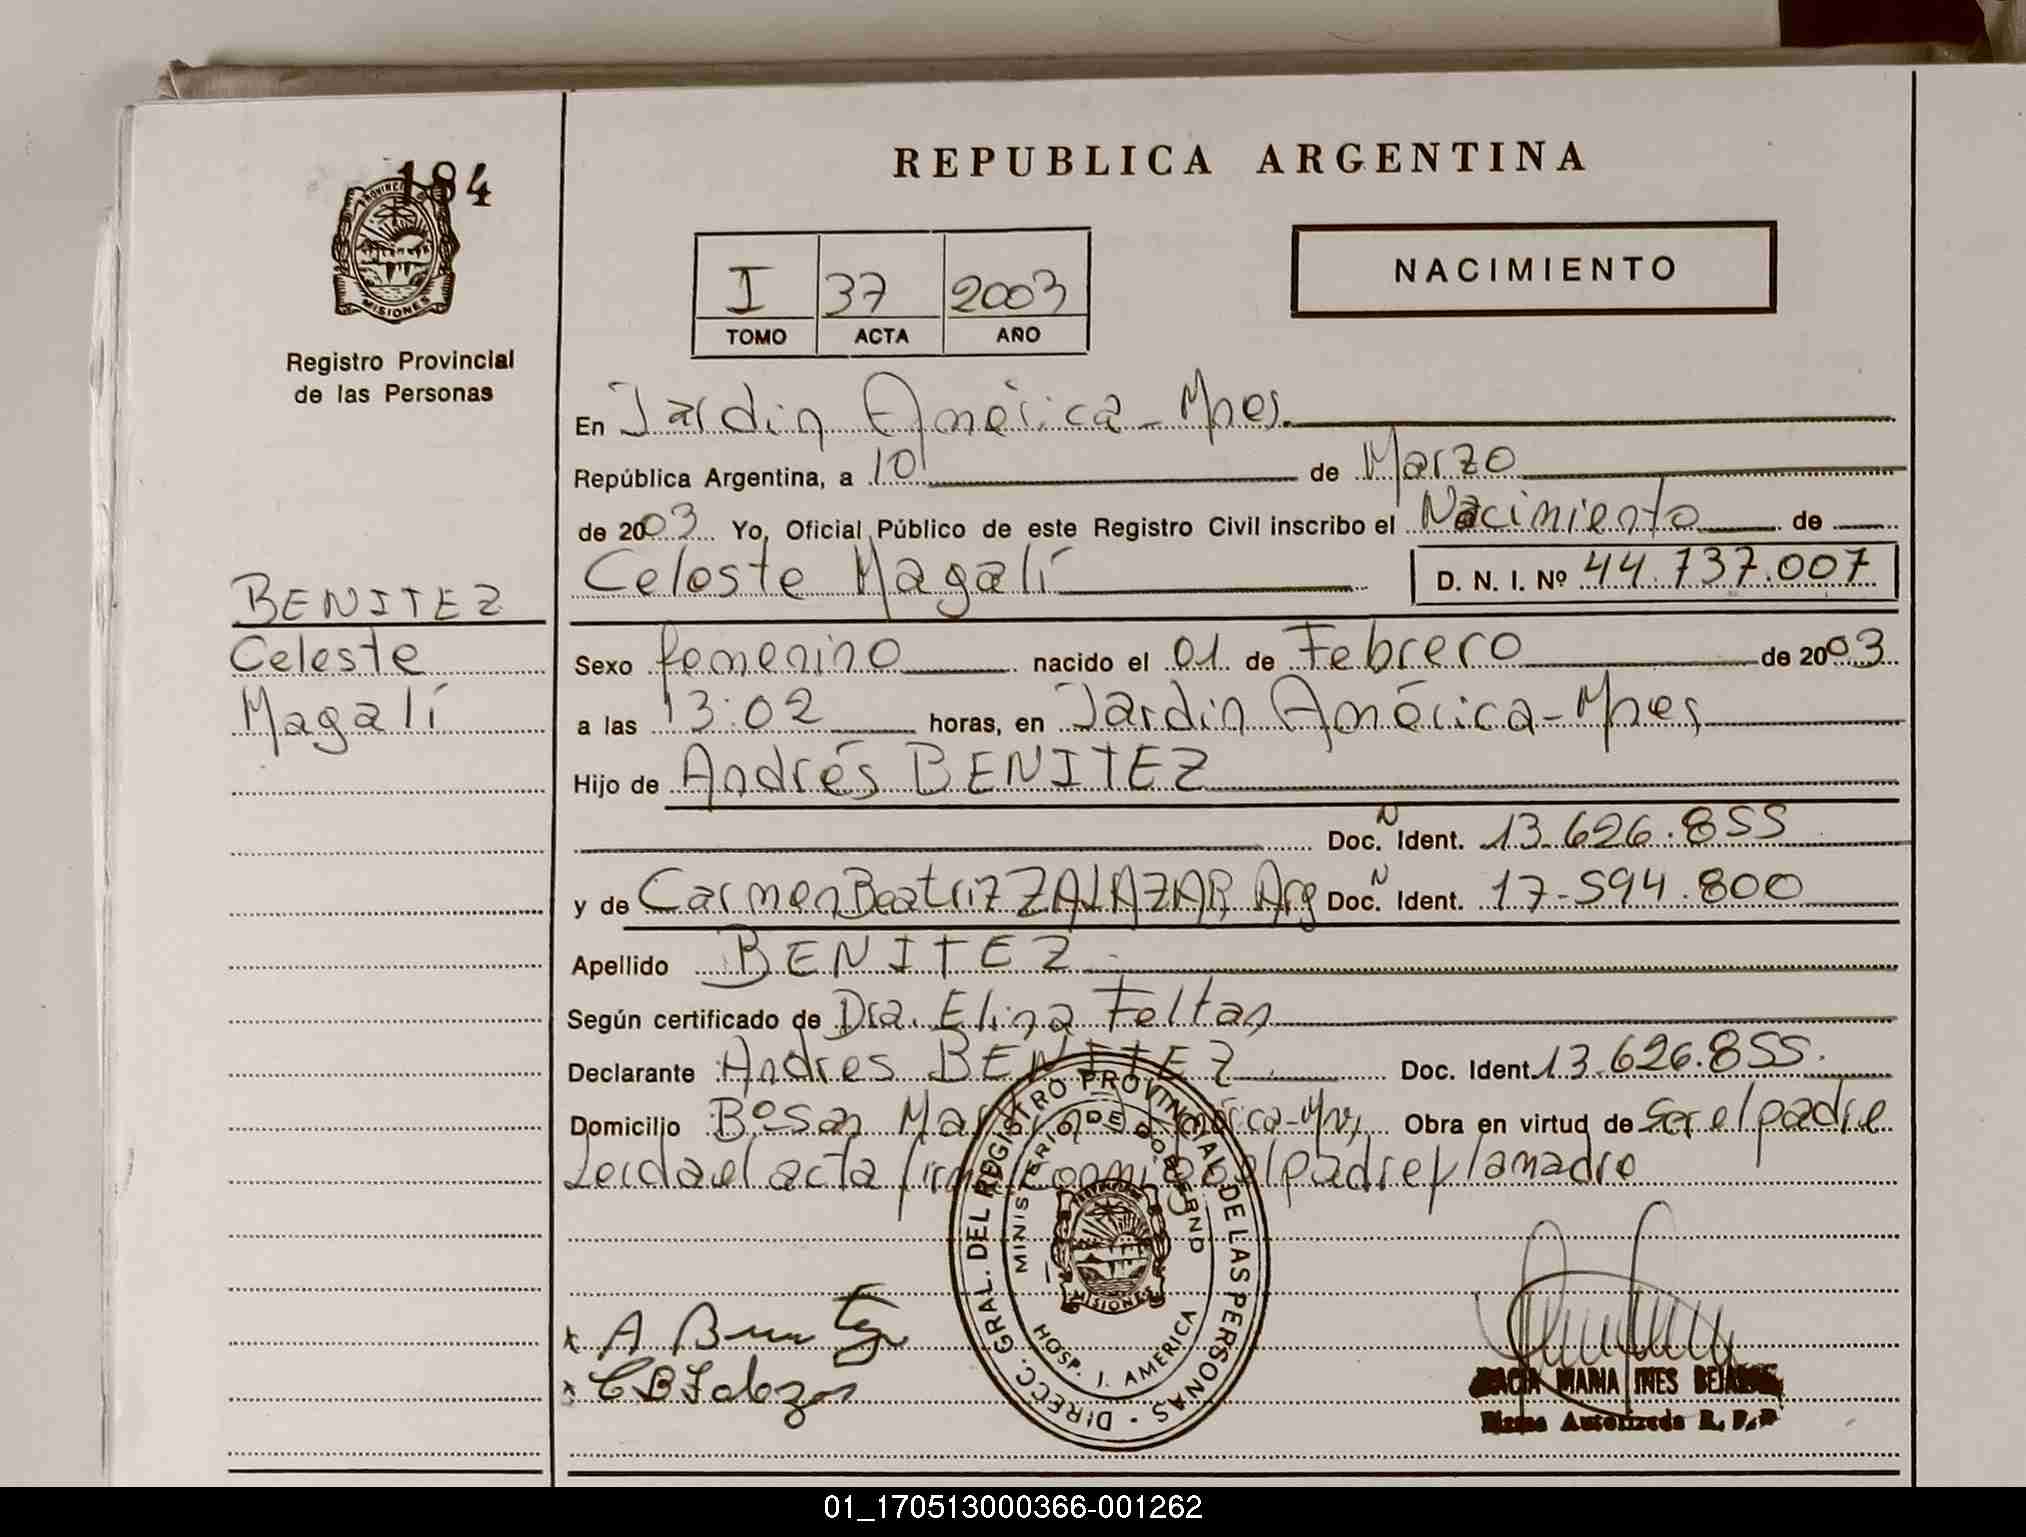 184
REPUBLICA ARGENTINA
PROVINCIA
MISIONES
Registro Provincial
de las Personas
I 37 2003
TOMO ACTA AÑO
NACIMIENTO
En Jardin América - Mnes.
República Argentina, a 10 de Marzo
de 2003 Yo, Oficial Público de este Registro Civil inscribo el Nacimiento de
Celeste Magalí D. N. I. Nº 44.737.007
BENITEZ
Celeste
Magalí
Sexo femenino nacido el 01 de Febrero de 2003
a las 13:02 horas, en Jardin América - Mnes
Hijo de Andrés BENITEZ
Doc. N Ident. 13.626.855
y de Carmen Beatriz ZALAZAR Arg Doc. N Ident. 17-594.800
Apellido BENITEZ
Según certificado de Dra. Elina Feltan
Declarante Andres BENITEZ Doc. Ident. 13.626.855.
Domicilio Bº San América-Mnes Obra en virtud de Ser el padre
Leida el acta conmigo el padre y la madre
DIRECC. GRAL. DEL REGISTRO PROVINCIAL DE LAS PERSONAS
MINISTERIO DE GOBIERNO
MISIONES
HOSP. J. AMERICA
x A Benitez
x C B Zalazar
MARIA INES
Firma Autorizada R. P. P
01_170513000366-001262